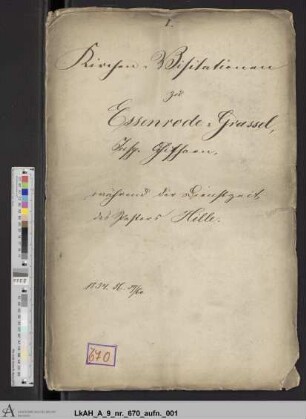 1.
Kirchen-Visitationen
zu
Essenrode-Grassel,
Insp. Gifhorn,
während der Dienstzeit
des Pastors Hille.
1854. 56.
670
LkAH_A_9_nr._670_aufn._001